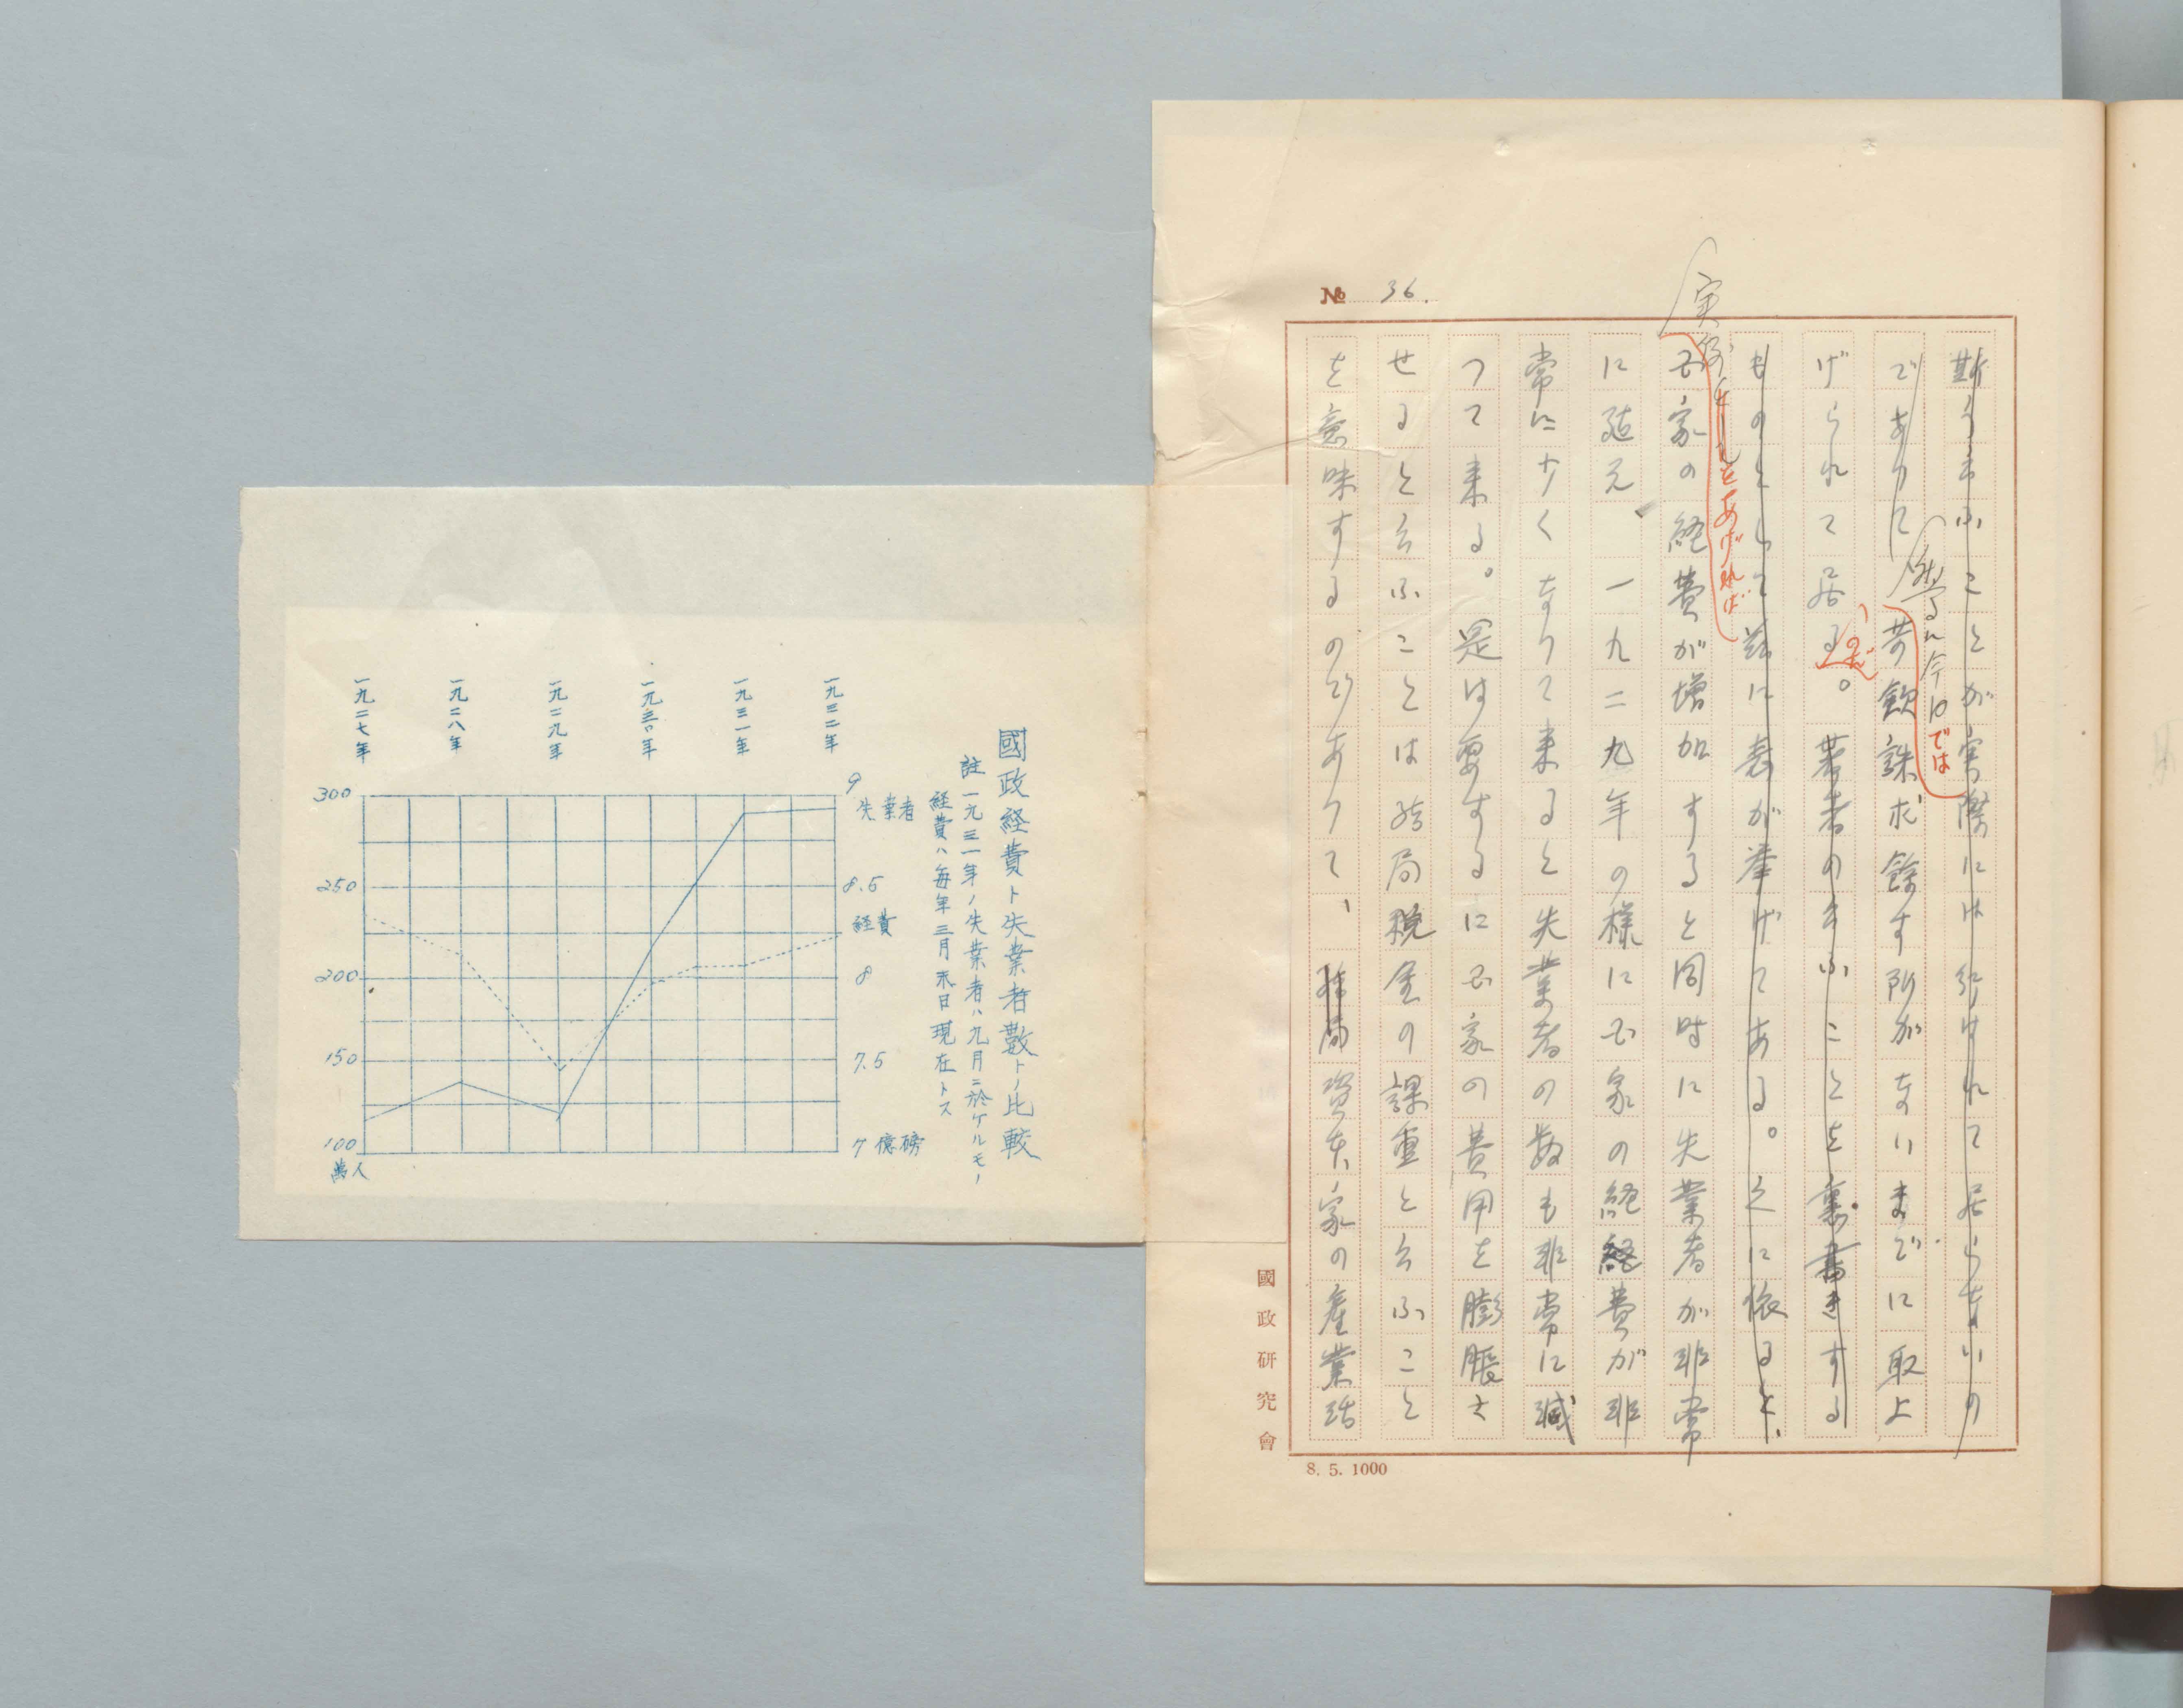 № 36.
斯う云ふことが実際には行はれて居らないの
でありて
然るに今日では
苛歛誅求餘す所がないまでに取上
げられて居る。
のだ
著者の云ふことを裏書きする
ものとして茲に表が挙げてある。之に依ると、
実例を
とをあげれば
国家の経費が増加すると同時に失業者が非常
に殖え、一九二九年の様に国家の経費が非
常に少くなりて来ると失業者の数も非常に減
つて来る。是は要するに国家の費用を膨脹さ
せると云ふことは結局税金の課重と云ふこと
を意味するのでありて、結局資本家の産業活
國政研究會
8. 5. 1000
國政経費ト失業者數トノ比較
註 一九三一年ノ失業者ハ九月ニ於ケルモノ
経費ハ毎年三月末日現在トス
一九三二年
一九三一年
一九三〇年
一九二九年
一九二八年
一九二七年
300
250
200
150
100
萬人
9
失業者
8.5
経費
8
7.5
7億磅